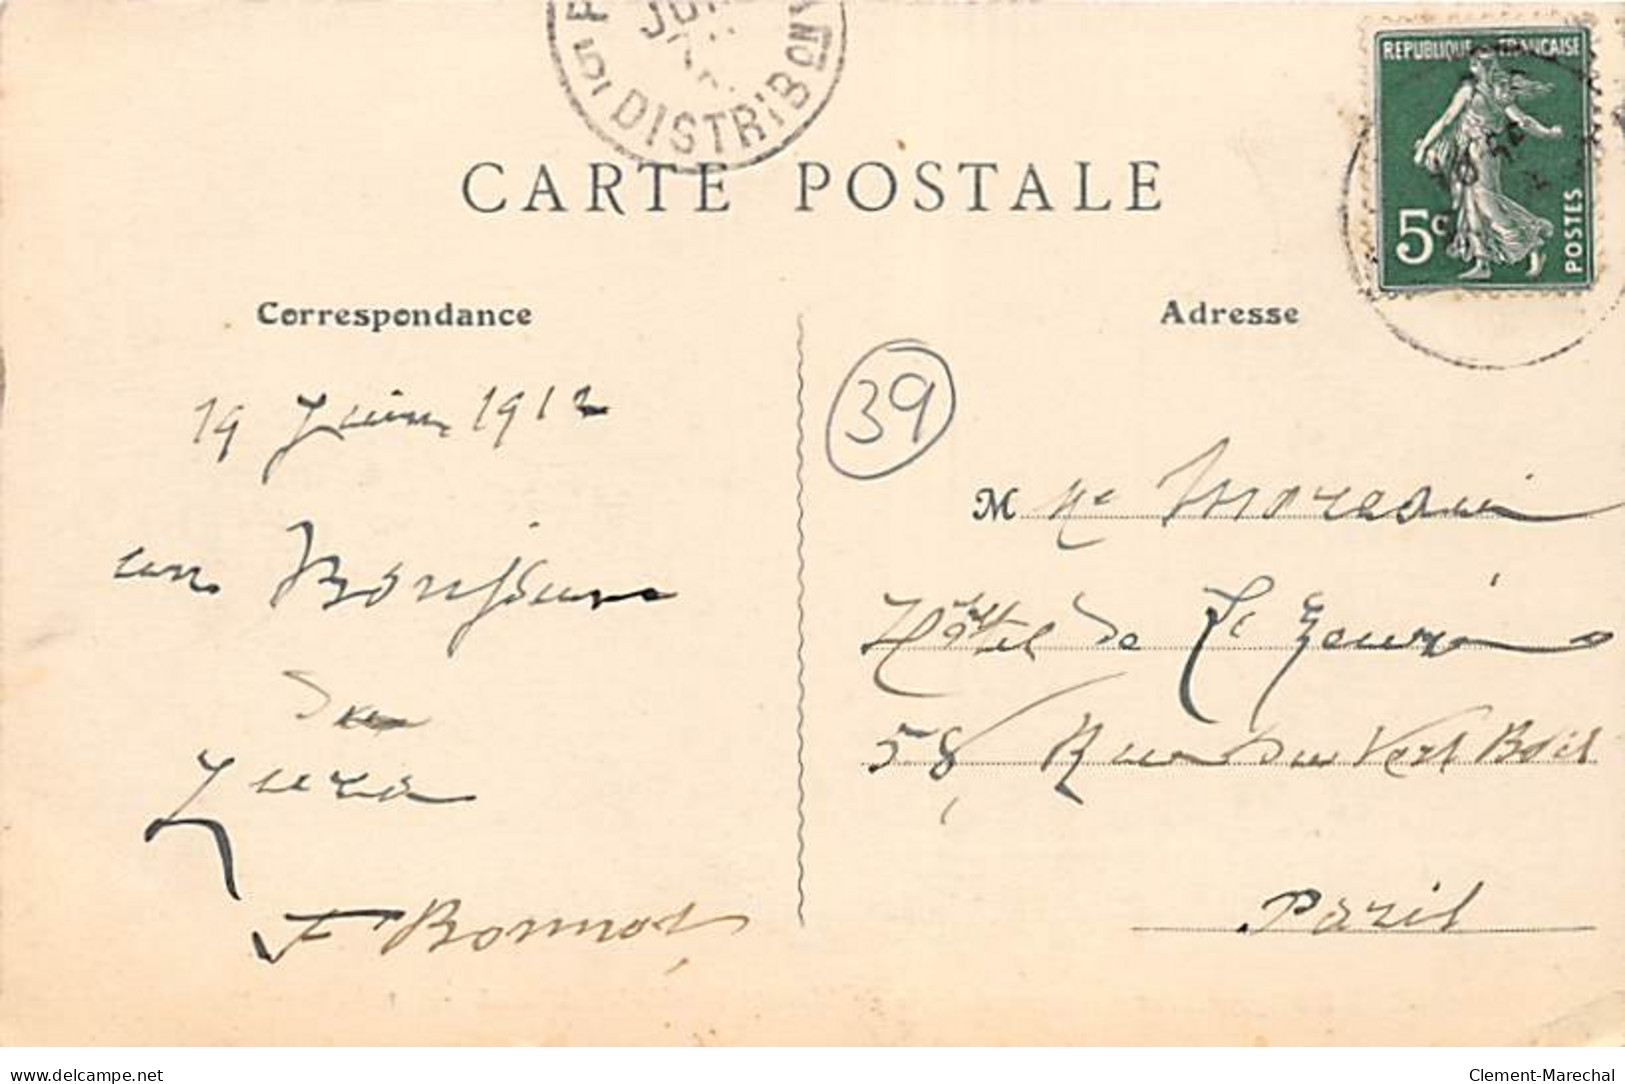 JUI
5E DISTRIBON
CARTE POSTALE
REPUBLIQUE FRANCAISE
5c
POSTES
Correspondance
Adresse
39
19 Juin 1912
un Bonjour
du
Jura
F Bonnot
M
Hôtel de
58 Rue du Vert Bois
Paris
www.delcampe.net
Clement-Marechal